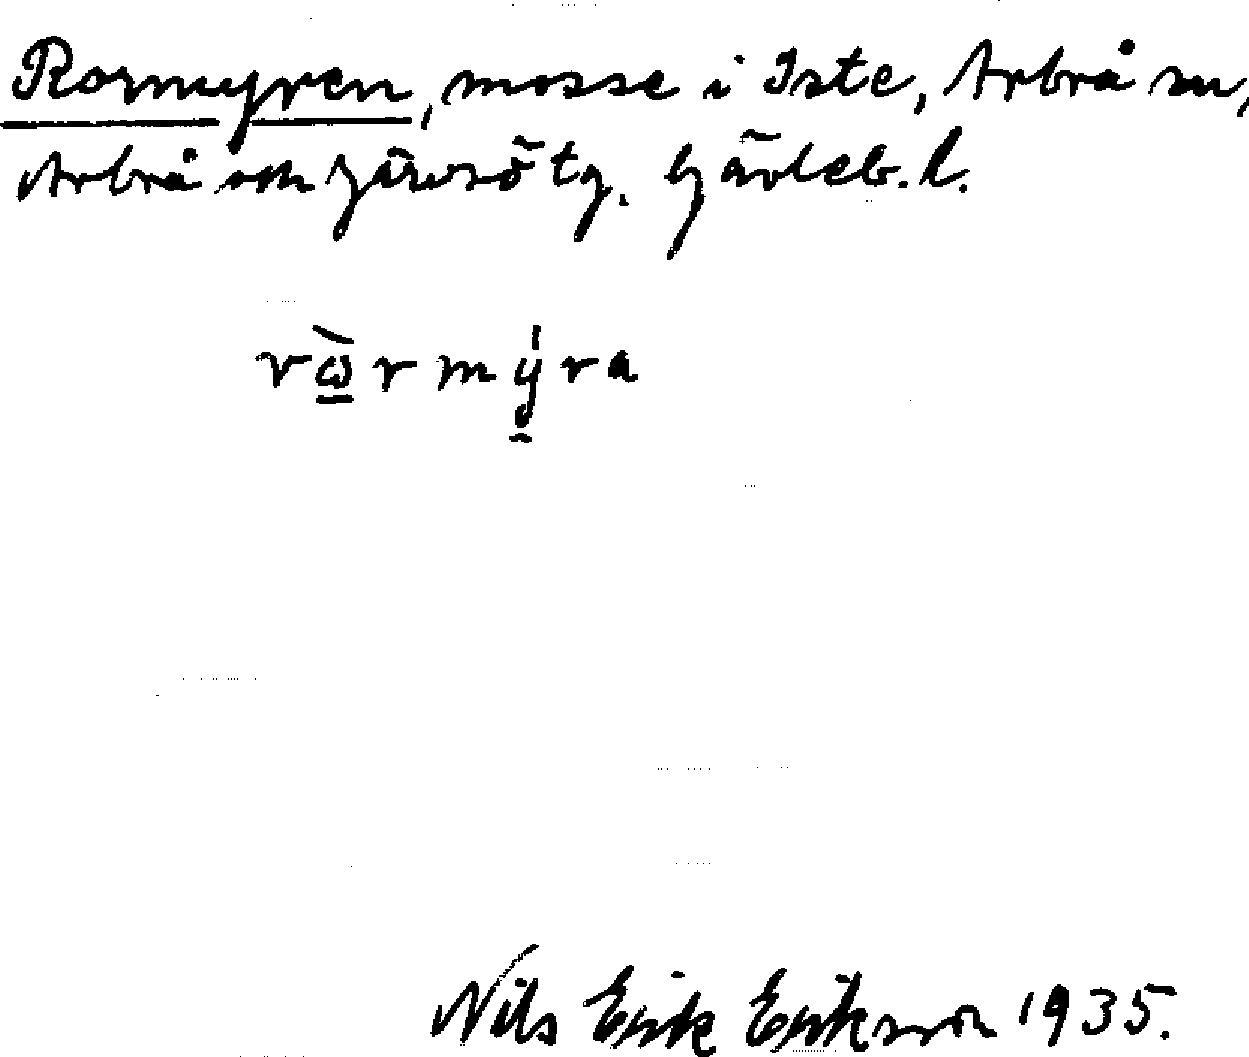 Rormyren, mosse i Iste, Arbrå sn,
Arbrå och Järvsö tg. Gävleb. l.
rὼ̲rmý̱ra
Nils Erik Eriksson 1935.